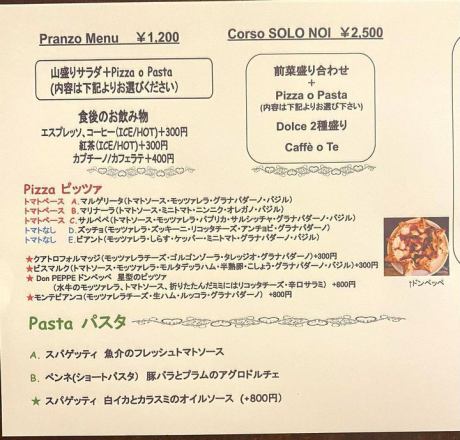 Pranzo Menu ￥1,200
山盛りサラダ+Pizza o Pasta
(内容は下記よりお選びください)
食後のお飲み物
エスプレッソ、コーヒー(ICE/HOT)+300円
紅茶(ICE/HOT)+300円
カプチーノ/カフェラテ+400円
Corso SOLO NOI ￥2,500
前菜盛り合わせ
+
Pizza o Pasta
(内容は下記よりお選び下さい)
Dolce 2種盛り
Caffè o Te
Pizza ピッツァ
トマトベース A.マルゲリータ(トマトソース・モッツァレラ・グラナパダーノ・バジル)
トマトベース B.マリナーラ(トマトソース・ミニトマト・ニンニク・オレガノ・バジル)
トマトベース C.サルペペ(トマトソース・モッツァレラ・パプリカ・サルシッチャ・グラナパダーノ・バジル)
トマトなし D.ズッチョ(モッツァレラ・ズッキーニ・リコッタチーズ・アンチョビ・グラナパダーノ)
トマトなし E.ビアント(モッツァレラ・しらす・ケッパー・ミニトマト・グラナパダーノ・バジル)
★クアトロフォルマッジ(モッツァレラチーズ・ゴルゴンゾーラ・タレッジオ・グラナパダーノ)+300円
★ビスマルク(トマトソース・モッツァレラ・モルタデッラハム・半熟卵・こしょう・グラナパダーノ・バジル)+300円
★ Don PEPPE ドンペッペ 星型のピッツァ
(水牛のモッツァレラ、トマトソース、折りたたんだミミにはリコッタチーズ・辛口サラミ) +800円
★モンテビアンコ(モッツァレラチーズ・生ハム・ルッコラ・グラナパダーノ) +800円
↑ドンペッペ
Pasta パスタ
A. スパゲッティ 魚介のフレッシュトマトソース
B. ペンネ(ショートパスタ) 豚バラとプラムのアグロドルチェ
★ スパゲッティ 白イカとカラスミのオイルソース (+800円)